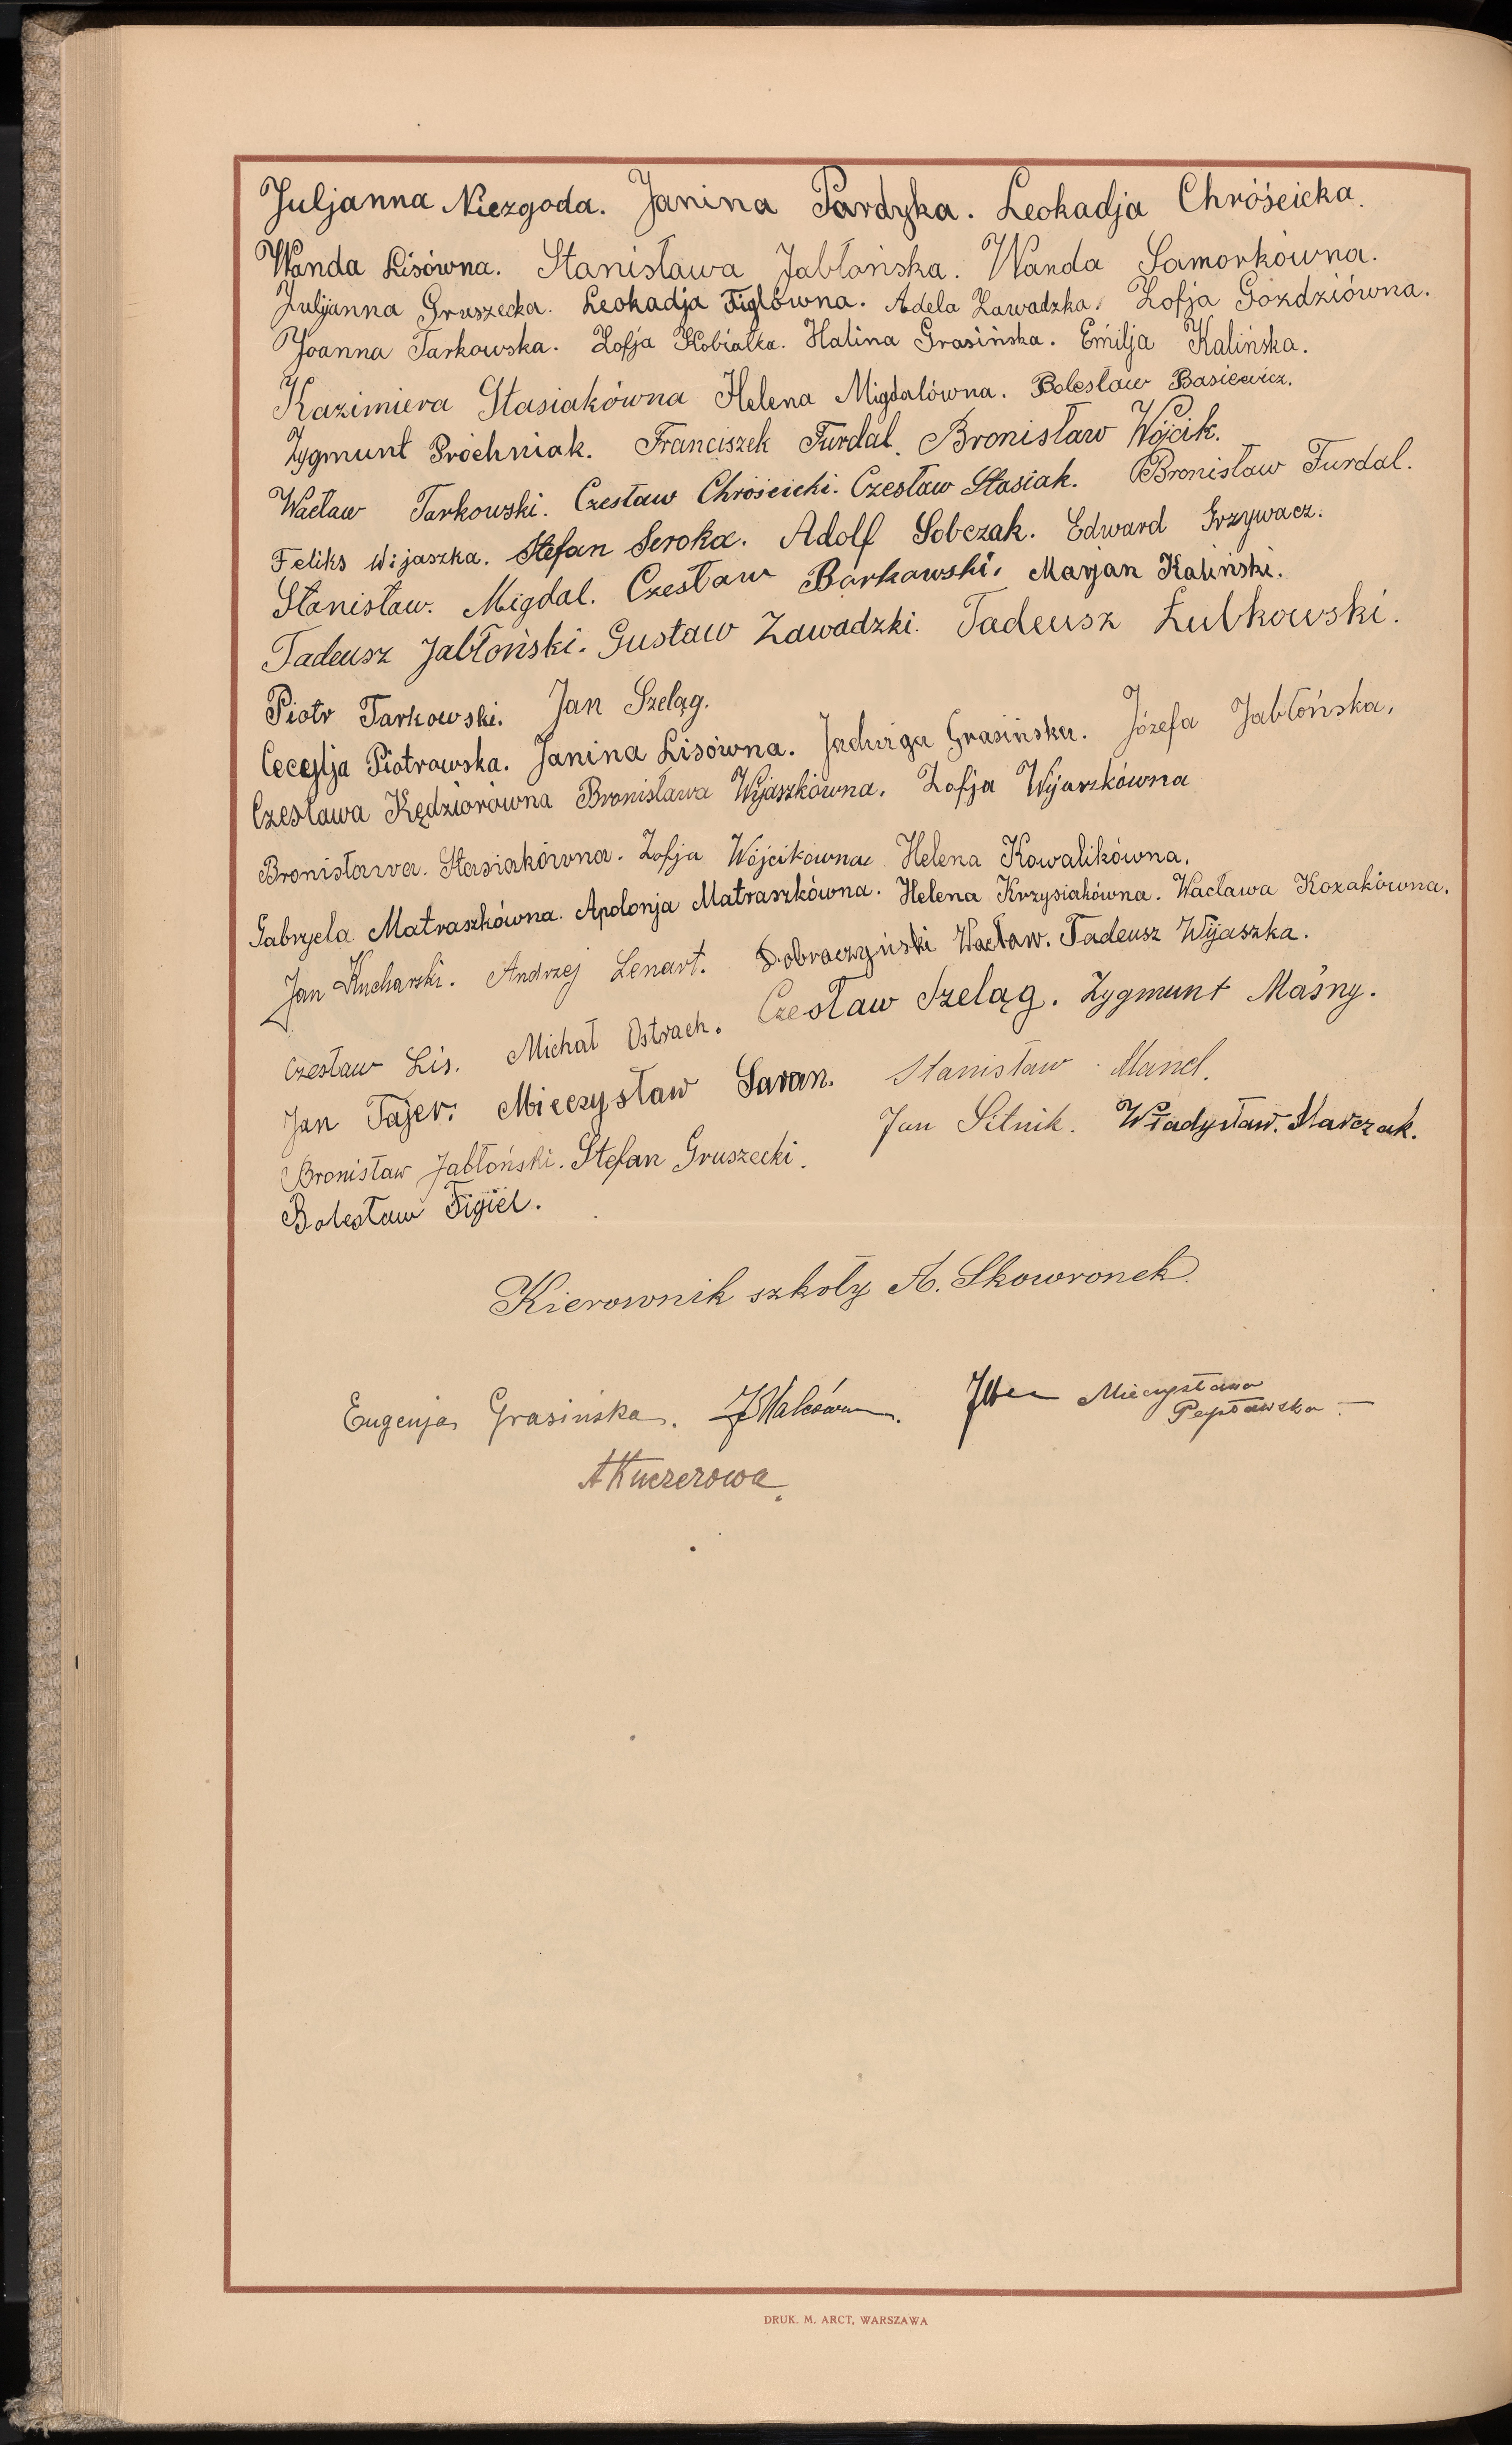 Juljanna Niezgoda. Janina Pardyka. Leokadja Chróścicka.
Wanda Lisówna. Stanisława Jabłońska. Wanda Samorkówna.
Juljanna Gruszecka. Leokadja Figlówna. Adela Zawadzka. Zofja Góździówna.
Joanna Tarkowska. Zofja Kobiałka. Halina Grasińska. Emilja Kalińska.
Kazimiera Stasiakówna Helena Migdalówna. Bolesław Basiewicz.
Zygmunt Próchniak. Franciszek Furdal. Bronisław Wójcik.
Wacław Tarkowski. Czesław Chróścicki. Czesław Stasiak. Bronisław Furdal.
Feliks Wijaszka. Stefan Seroka. Adolf Sobczak. Edward Grzywacz.
Stanisław. Migdal. Czesław Barkawski. Marjan Kaliński.
Tadeusz Jabłoński. Gustaw Zawadzki. Tadeusz Łubkowski.
Piotr Tarkowski. Jan Szeląg.
Cecylja Piotrowska. Janina Lisówna. Jadwiga Grasińska. Józefa Jabłońska.
Czesława Kędziorówna Bronisława Wijaszkówna. Zofja Wijaszkówna
Bronisława. Stasiakówna. Zofja Wójcikówna Helena Kowalikówna.
Gabryela Matraszkówna. Apolonja Matraszkówna. Helena Krzysiakówna. Wacława Kozakówna.
Jan Kucharski. Andrzej Lenart. Dobraczyński Wacław. Tadeusz Wijaszka.
Czesław Lis. Michał Ostrach. Czesław Szeląg. Zygmunt Maśny.
Jan Tajer. Mieczysław Saran. Stanisław Mand.
Bronisław Jabłoński. Stefan Gruszecki. Jan Sitnik. Władysław. Marczak.
Bolesław Figiel.
Kierownik szkoły A. Skowronek.
Eugenja Grasińska. Mieczysława
Pepławska
AKuczerowa.
DRUK. M. ARCT, WARSZAWA